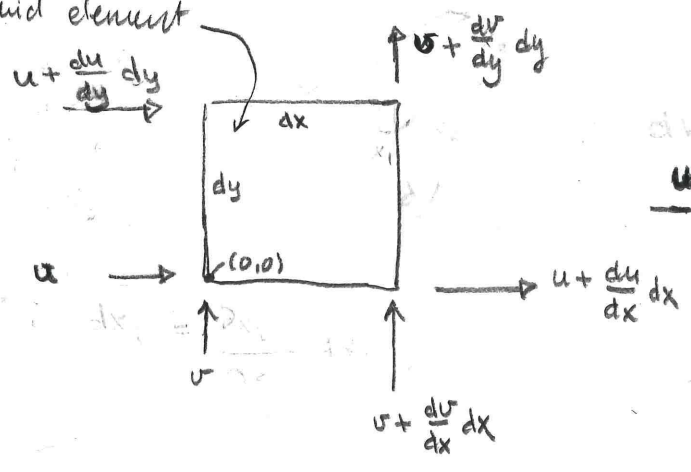 element
u + du/dy dy
v + dv/dy dy
dx
dy
u
(0,0)
u
u + du/dx dx
v
v + dv/dx dx